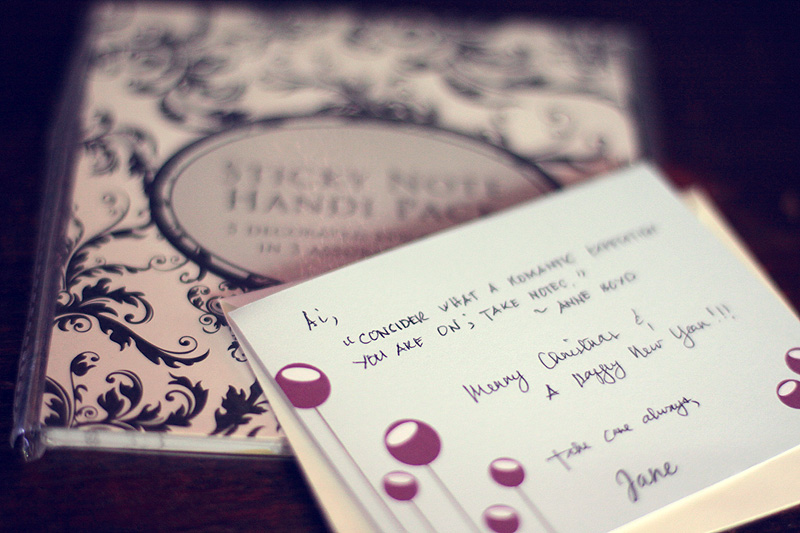 STICKY NOTE
HANDI PACK
3 DECORATED
IN 3
Ai,
"CONSIDER WHAT A ROMANTIC EXPEDITION
YOU ARE ON; TAKE NOTES."
~ ANNE
Merry Christmas &
A Happy New Year!!!
Take care always,
Jane